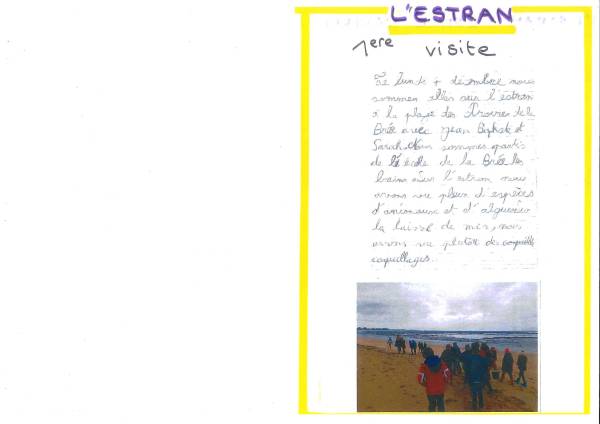 L'ESTRAN
1ere visite
Le lundi 7 décembre nous
sommes allés sur l'estran
à la plage des de la
Brée avec Jean Baptiste et
Sarah. Nous sommes partis
de l'école de la Brée les
bains. Sur l'estran nous
avons vu plein d'espèces
d'animaux et d'algues. Sur
la laisse de mer, nous
avons vu plutôt de coquille
coquillages.